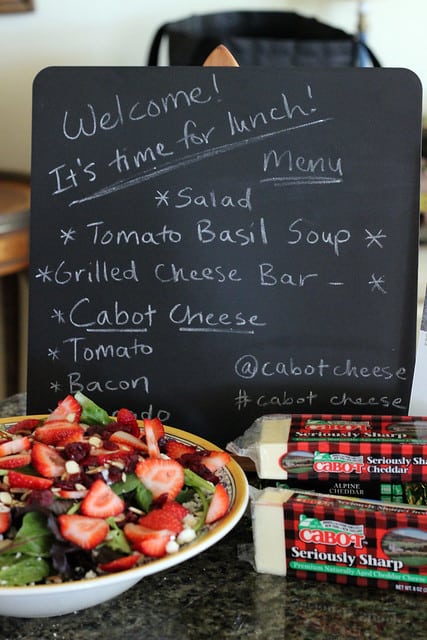 Welcome!
It's time for lunch!
Menu
* Salad
* Tomato Basil Soup *
* Grilled Cheese Bar - *
* Cabot Cheese
* Tomato
* Bacon
@cabotcheese
#cabot cheese
Seriously Sharp
CABOT Seriously Sharp
Cheddar
ALPINE
CHEDDAR
CABOT
Seriously Sharp
Premium Naturally Aged Cheddar Cheese